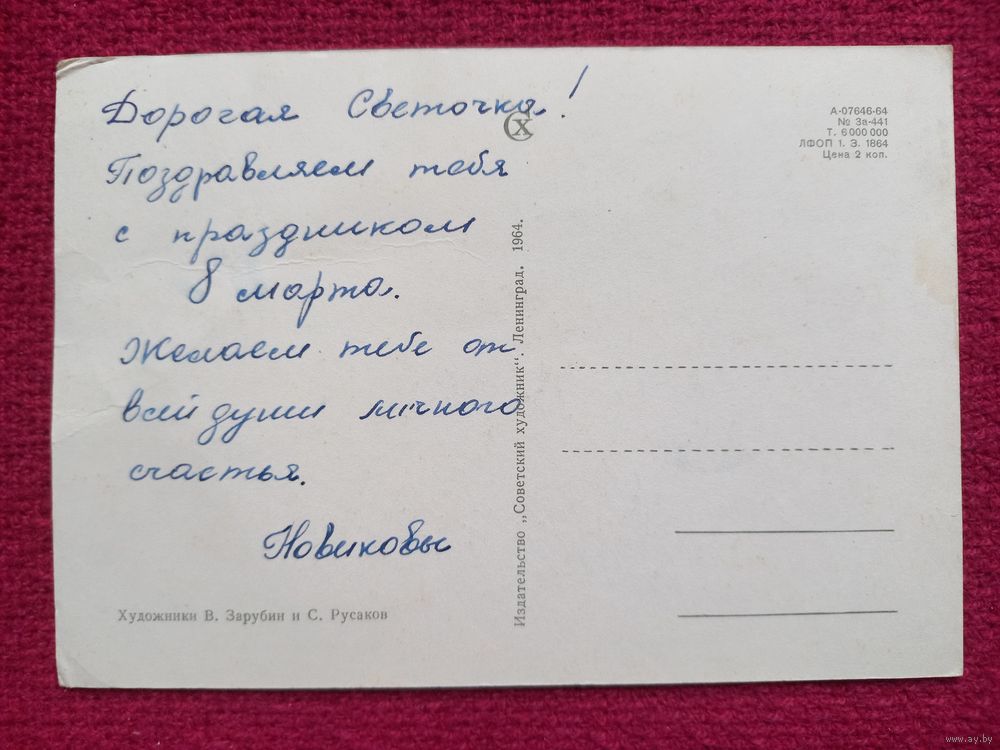 Дорогая Светочка!
Поздравляем тебя
с праздником
8 марта.
Желаем тебе от
всей души личного
счастья.
Новиковы
Художники В. Зарубин и С. Русаков
Издательство „Советский художник“. Ленинград. 1964.
СХ
А-07646-64
№ За-441
Т. 6 000 000
ЛФОП 1. Э. 1864
Цена 2 коп.
www.ay.by